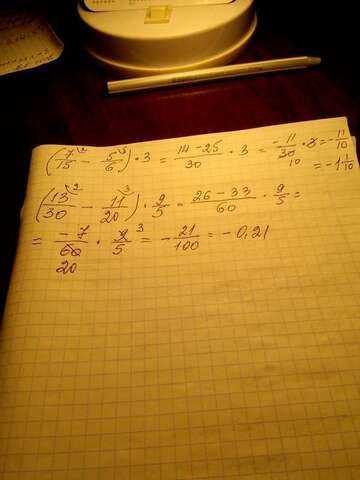 (7/15 - 5/6) · 3 = 14-25/30 · 3 = -11/30 · 3 = -11/10
10 = -1 1/10
(13/30 - 11/20) · 9/5 = 26-33/60 · 9/5 =
= -7/60 · 9/5 3 = -21/100 = -0,21
20